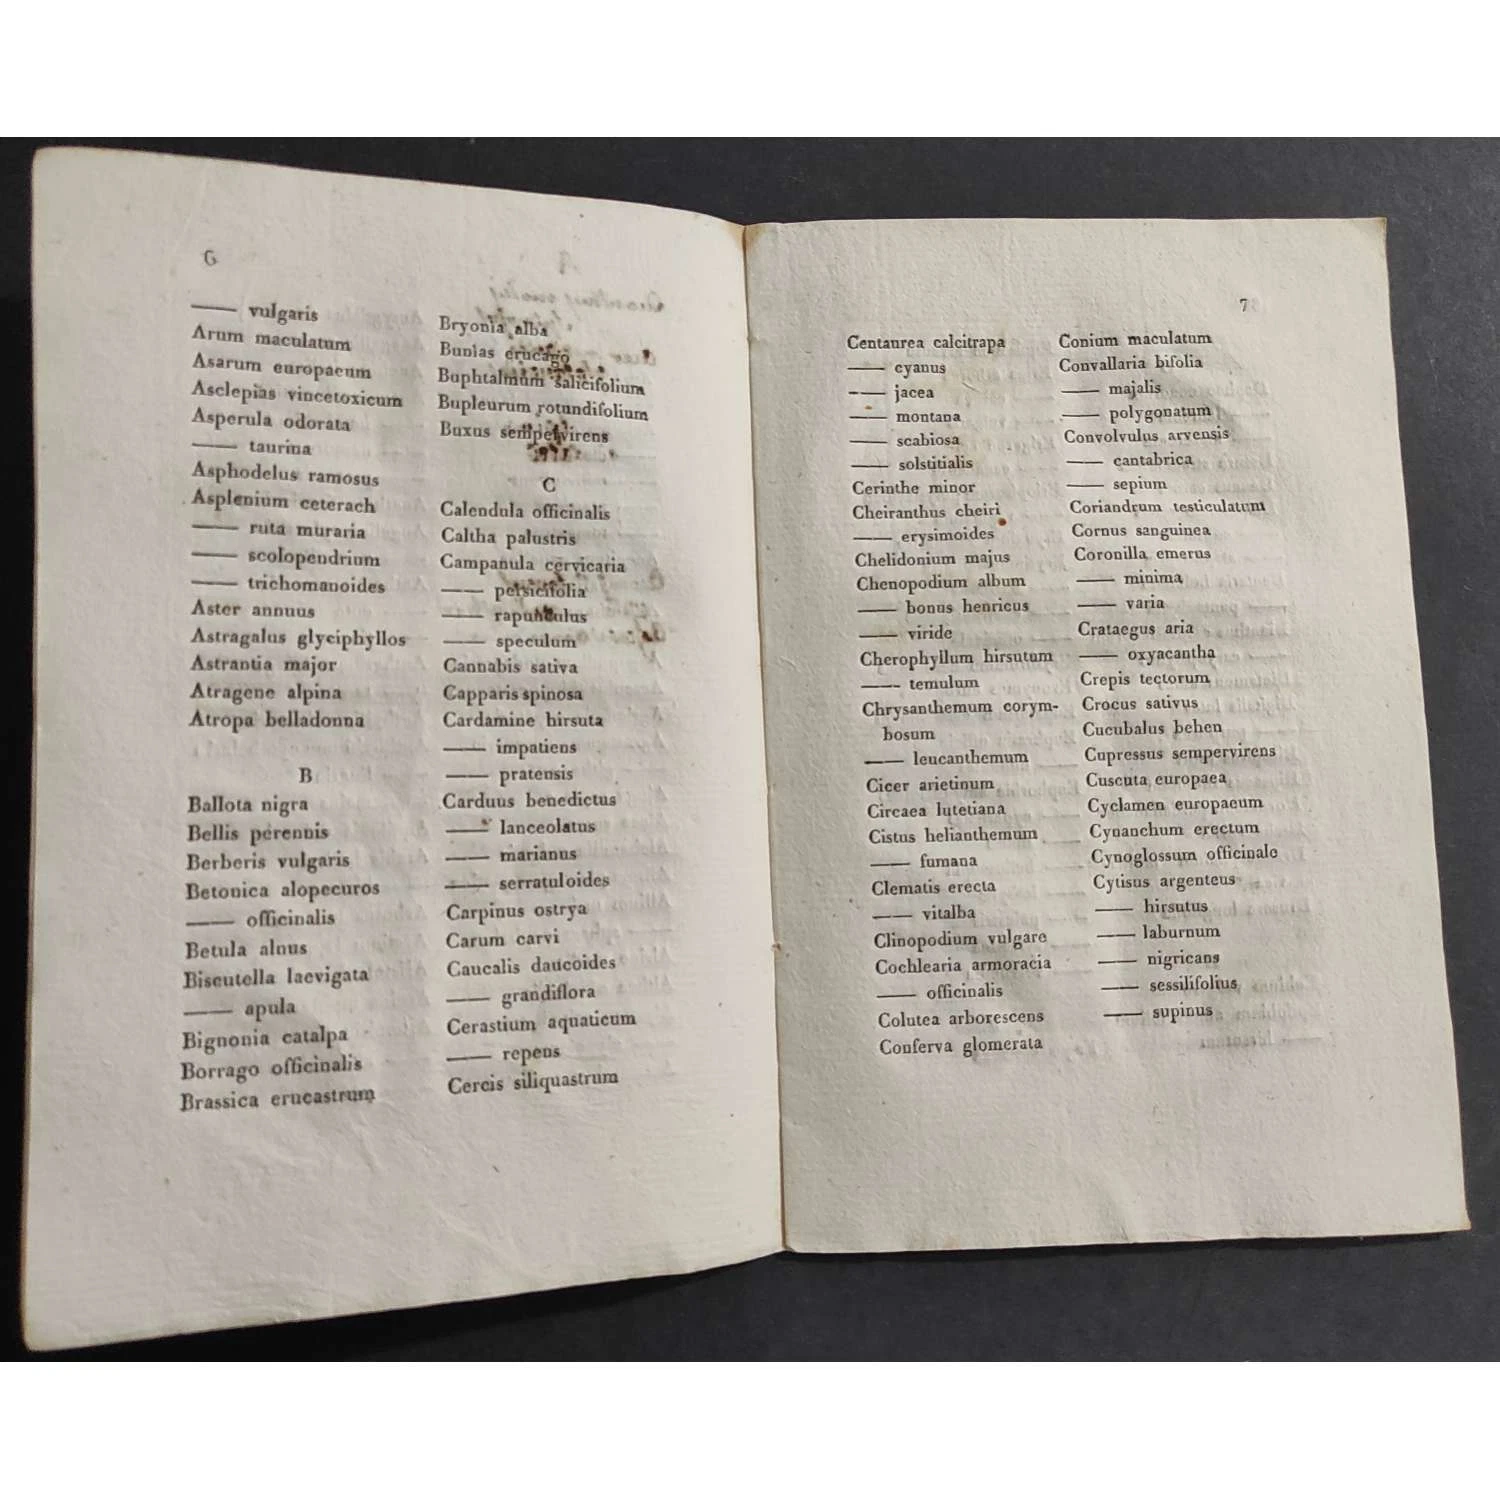 6
—— vulgaris
Arum maculatum
Asarum europaeum
Asclepias vincetoxicum
Asperula odorata
—— taurina
Asphodelus ramosus
Asplenium ceterach
—— ruta muraria
—— scolopendrium
—— trichomanoides
Aster annuus
Astragalus glyciphyllos
Astrantia major
Atragene alpina
Atropa belladonna
B
Ballota nigra
Bellis perennis
Berberis vulgaris
Betonica alopecuros
—— officinalis
Betula alnus
Biscutella laevigata
—— apula
Bignonia catalpa
Borrago officinalis
Brassica erucastrum
Bryonia alba
Bunias erucago
Buphtalmum salicifolium
Bupleurum rotundifolium
Buxus sempervirens
C
Calendula officinalis
Caltha palustris
Campanula cervicaria
—— persicifolia
—— rapunculus
—— speculum
Cannabis sativa
Capparis spinosa
Cardamine hirsuta
—— impatiens
—— pratensis
Carduus benedictus
—— lanceolatus
—— marianus
—— serratuloides
Carpinus ostrya
Carum carvi
Caucalis daucoides
—— grandiflora
Cerastium aquaticum
—— repens
Cercis siliquastrum
7
Centaurea calcitrapa
—— cyanus
—— jacea
—— montana
—— scabiosa
—— solstitialis
Cerinthe minor
Cheiranthus cheiri
—— erysimoides
Chelidonium majus
Chenopodium album
—— bonus henricus
—— viride
Cherophyllum hirsutum
—— temulum
Chrysanthemum corym-
bosum
—— leucanthemum
Cicer arietinum
Circaea lutetiana
Cistus helianthemum
—— fumana
Clematis erecta
—— vitalba
Clinopodium vulgare
Cochlearia armoracia
—— officinalis
Colutea arborescens
Conferva glomerata
Conium maculatum
Convallaria bifolia
—— majalis
—— polygonatum
Convolvulus arvensis
—— cantabrica
—— sepium
Coriandrum testiculatum
Cornus sanguinea
Coronilla emerus
—— minima
—— varia
Crataegus aria
—— oxyacantha
Crepis tectorum
Crocus sativus
Cucubalus behen
Cupressus sempervirens
Cuscuta europaea
Cyclamen europaeum
Cynanchum erectum
Cynoglossum officinale
Cytisus argenteus
—— hirsutus
—— laburnum
—— nigricans
—— sessilifolius
—— supinus